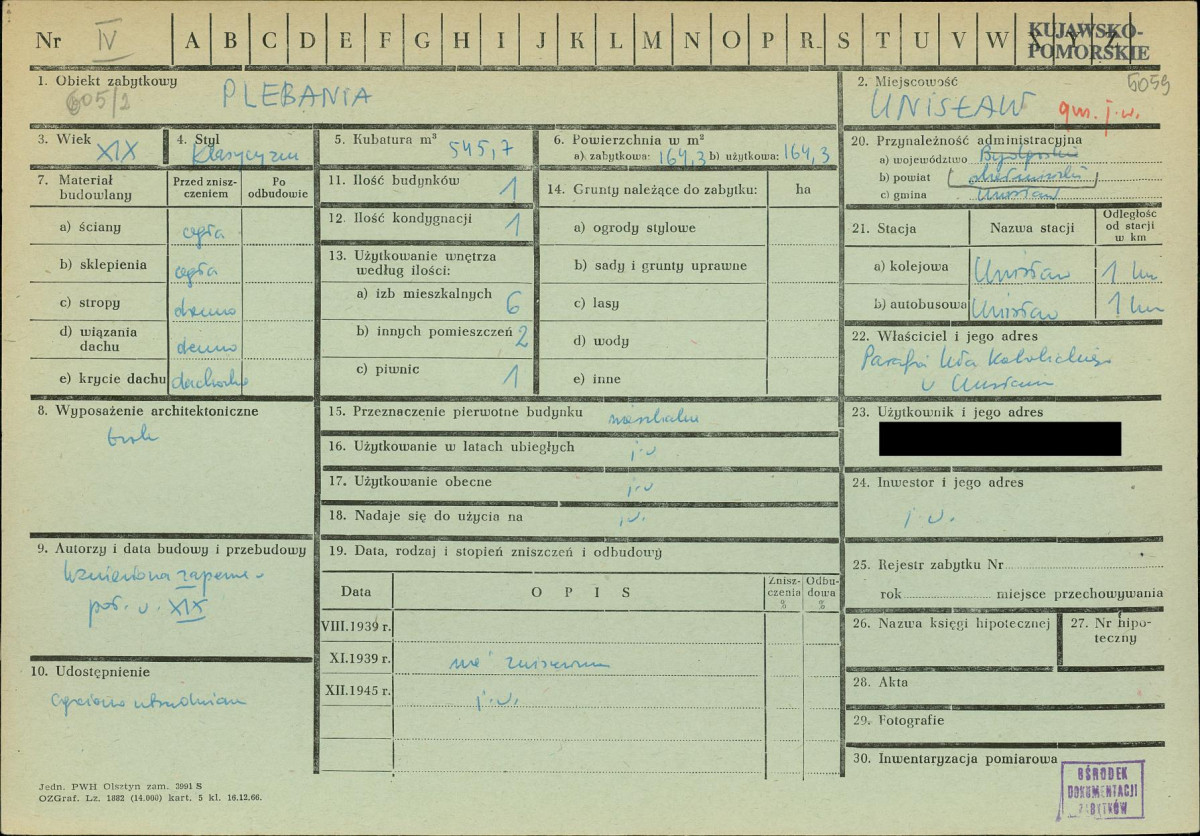 Nr IV A B C D E F G H I J K L M N O P R S T U V W X Y Z
KUJAWSKO-
POMORSKIE
1. Obiekt zabytkowy
605/2 PLEBANIA
2. Miejscowość 5059
UNISŁAW gm. j.w.
3. Wiek XIX
4. Styl Klasycyzm
5. Kubatura m³ 545,7
6. Powierzchnia w m²
a) zabytkowa: 164,3 b) użytkowa: 164,3
20. Przynależność administracyjna
a) województwo Bydgoskie
b) powiat chełmiński
c) gmina Unisław
7. Materiał budowlany
Przed znisz-
czeniem
Po
odbudowie
a) ściany cegła
b) sklepienia cegła
c) stropy drewno
d) wiązania
dachu drewno
e) krycie dachu dachówka
11. Ilość budynków 1
12. Ilość kondygnacji 1
13. Użytkowanie wnętrza
według ilości:
a) izb mieszkalnych 6
b) innych pomieszczeń 2
c) piwnic 1
14. Grunty należące do zabytku: ha
a) ogrody stylowe
b) sady i grunty uprawne
c) lasy
d) wody
e) inne
21. Stacja
Nazwa stacji
Odległość
od stacji
w km
a) kolejowa Unisław 1 km
b) autobusowa Unisław 1 km
22. Właściciel i jego adres
Parafia Katolickiego
w Unisławiu
8. Wyposażenie architektoniczne
brak
15. Przeznaczenie pierwotne budynku mieszkalne
16. Użytkowanie w latach ubiegłych j.w
17. Użytkowanie obecne j.w
18. Nadaje się do użycia na j.w.
23. Użytkownik i jego adres
24. Inwestor i jego adres
j.w.
9. Autorzy i data budowy i przebudowy
Wzniesiona zapewne w
poł. w. XIX
19. Data, rodzaj i stopień zniszczeń i odbudowy
Data
OPIS
Znisz-
czenia
%
Odbu-
dowa
%
VIII.1939 r.
XI.1939 r. nie zniszczona
XII.1945 r. j.w.
25. Rejestr zabytku Nr
rok miejsce przechowywania
26. Nazwa księgi hipotecznej
27. Nr hipo-
teczny
10. Udostępnienie
częściowo utrudnione
28. Akta
29. Fotografie
30. Inwentaryzacja pomiarowa
OŚRODEK
DOKUMENTACJI
ZABYTKÓW
Jedn. PWH Olsztyn zam. 3991 S
OZGraf. Lz. 1882 (14.000) kart. 5 kl. 16.12.66.